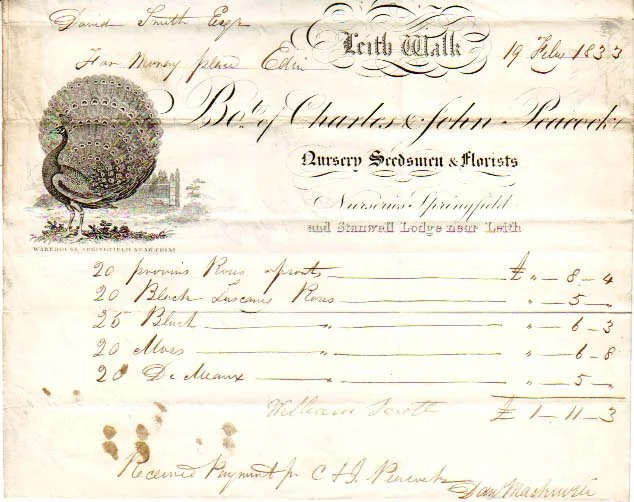 David Smith Esqr
Leith Walk
19 Feby 1833
For Money place Edin
Bot. of Charles & John Peacock
Nursery Seedsmen & Florists
Nurseries Springfield
and Stanwell Lodge near Leith
WAREHOUSE SPRINGFIELD NEAR EDINR
20 provins Roses sprots £ " – 8 – 4
20 Black Tuscany Roses " – 5 – "
25 Blush " " – 6 – 3
20 Moss " " – 6 – 8
20 De Meaux " " – 5 – "
William Scott £ 1 – 11 – 3
Received Payment pr C & J. Peacock
Dan